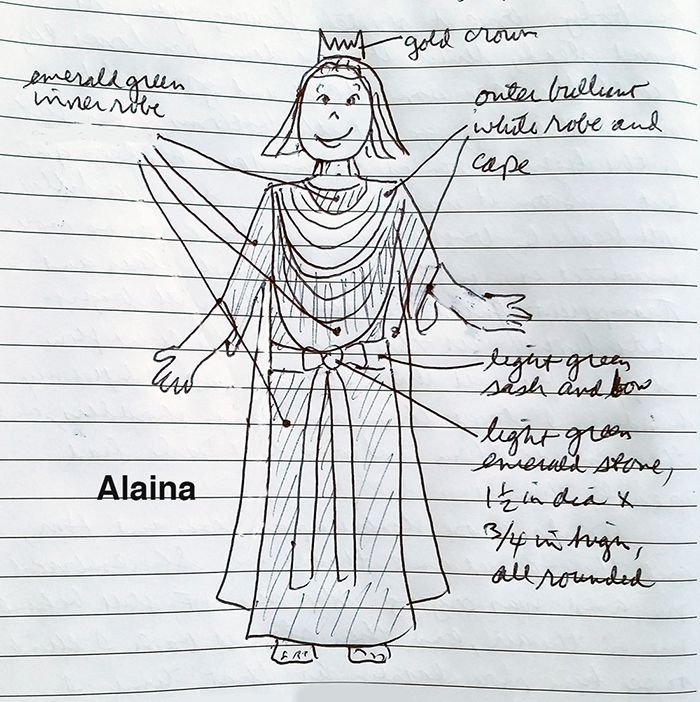 gold crown
emerald green
inner robe
outer brilliant
white robe and
cape
light green
sash and bow
light green
emerald stone,
1 1/2 in dia x
3/4 in high,
all rounded
Alaina